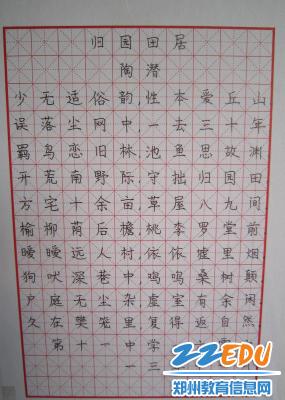 归园田居
陶潜
少无适俗韵,性本爱丘山
误落尘网中,一去三十年
羁鸟恋旧林,池鱼思故渊
开荒南野际,守拙归园田
方宅十余亩,草屋八九间
榆柳荫后檐,桃李罗堂前
暧暧远人村,依依墟里烟
狗吠深巷中,鸡鸣桑树颠
户庭无尘杂,虚室有余闲
久在樊笼里复得返自然
第十一中学
一三
22EDU
郑州教育信息网